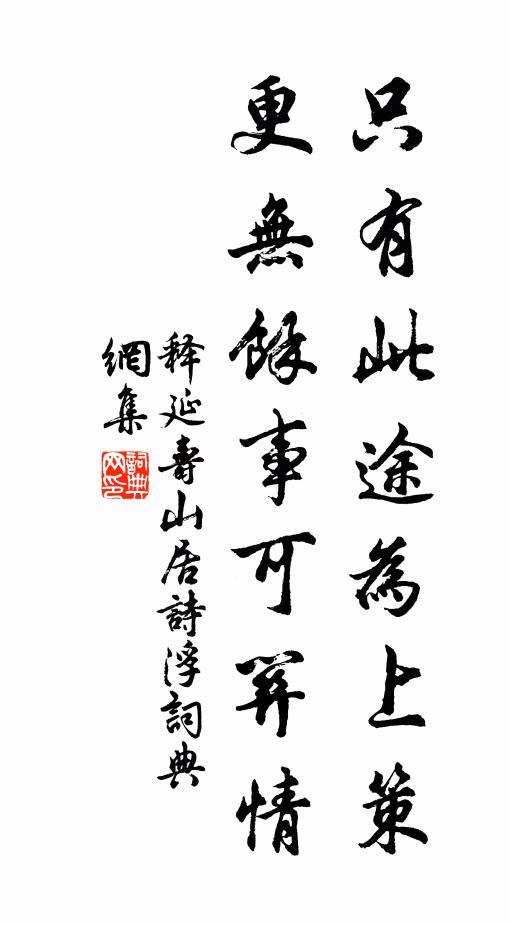 只有此途為上策
更無餘事可關情
释延壽山居詩浮詞典
網集
詞典網印